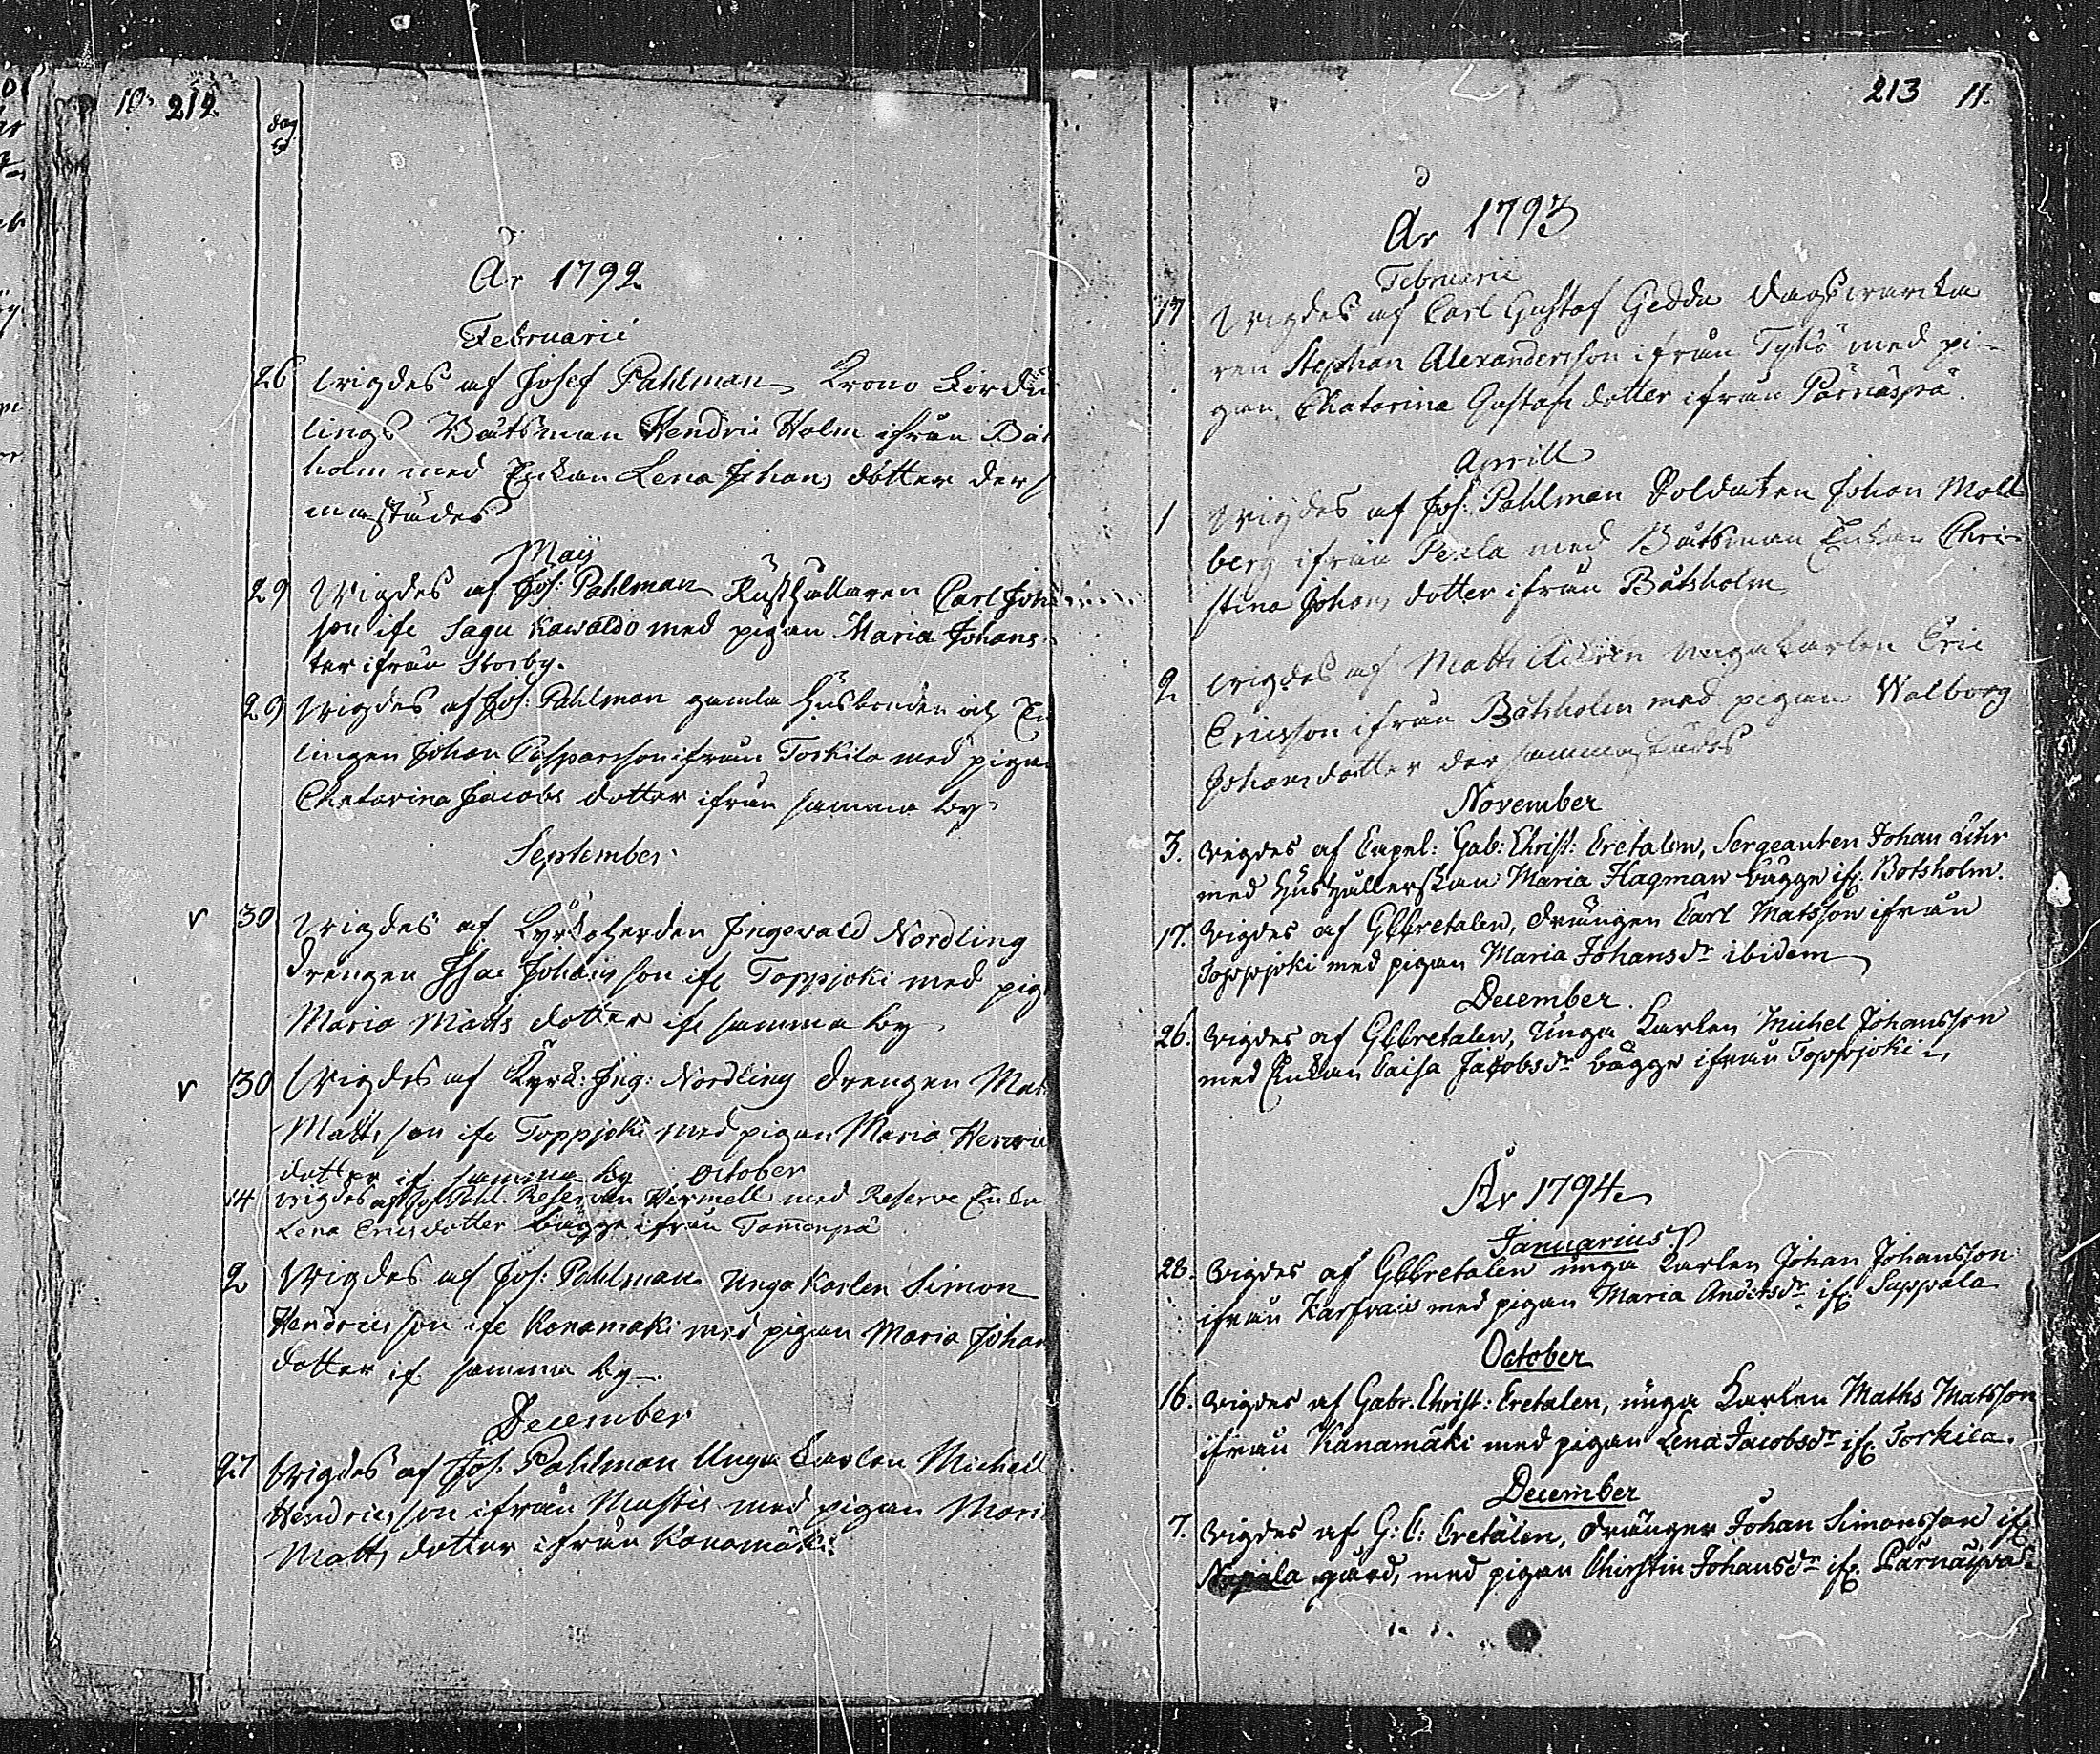 10. 212
dag
År 1792
Februarii
26 Wigdes af Josef Pahlman Krono
lings Båtsman Hendric Holm ifrån Båt
holm med Enkan Lena Johans dotter ders
mastädes
Maij
29 Wigdes af Jos: Pahlman Rusthållaren Carl Joha
son ifr Sagu Kawaldo med pigan Maria Johans
ter ifrån Storby.
29 Wigdes af Jos: Pahlman gamla Husbonden och En
lingen Johan Casparsson ifrån Torkila med piga
Chatarina Jacobs dotter ifrån samma by
September
v 30 Wigdes af Kyrkoherden Ingewald Nordling
Drengen Isac Johansson ifr Toppjoki med pig
Maria Matts dotter ifr samma by
v 30 Wigdes af Kyrk: Ing: Nordling Drengen Mat
Matts son ifr Toppjoki med pigan Maria Henric
dotter if. samma by October
14 Wigdes af Jos Pahl. Reserven Wermell med Reserve Enka
Lena Erics dotter bägge ifrån Tammenpä
2 Wigdes af Jos: Pahlman Unga Karlen Simon
Hendricsson ifr Konamäki med pigan Maria Johan
dotter if. samma by
December
27 Wigdes af Jos. Pahlman Unga Karlen Michell
Hendricsson ifrån Mustis med pigan Mari
Matts dotter ifrån Konamäki
213 11.
År 1793
Februarii
17 Wigdes af Carl Gustaf Gedda
ren Stephan Alexandersson ifrån Tykö med pi-
gan Chatarina Gustafs dotter ifrån Pärnäspä.
Aprill
1 Wigdes af Jos: Pahlman Soldaten Johan Malm
berg ifrån Perla med Båtsman Enkan Chri-
stina Johans dotter ifrån Båtsholm
2 Wigdes af Matth unga karlen Eric
Ericsson ifrån Båtsholm med pigan Walborg
Johans dotter der sammastädes
November
3. Wigdes af Capel: Gab: Christ: Cretalen, Sergeanten Johan Lihr
med Hushållerskan Maria Hagman bägge ifr. Botsholm.
17. Wigdes af GCCretalen, Drängen Carl Matsson ifrån
Toppjoki med pigan Maria Johansdr ibidem
December.
26. Wigdes af GCCretalen, Unga Karlen Michel Johansson
med Enkan Caisa Jacobsdr bägge ifrån Toppjoki
År 1794
Januarius
28. Wigdes af GCCretalen unga Karlen Johan Johansson
ifrån Karfvais med pigan Maria Andersdr ifr. Sappala
October
16. Wigdes af Gabr. Christ: Cretalen, unga Karlen Maths Matsson
ifrån Kanamäki med pigan Lena Jacobsdr ifr. Torkila.
December
7. Wigdes af G: C: Cretalen, Drängen Johan Simonsson ifr
Näpala gård, med pigan Christin Johansdr ifr. Pärnäspä